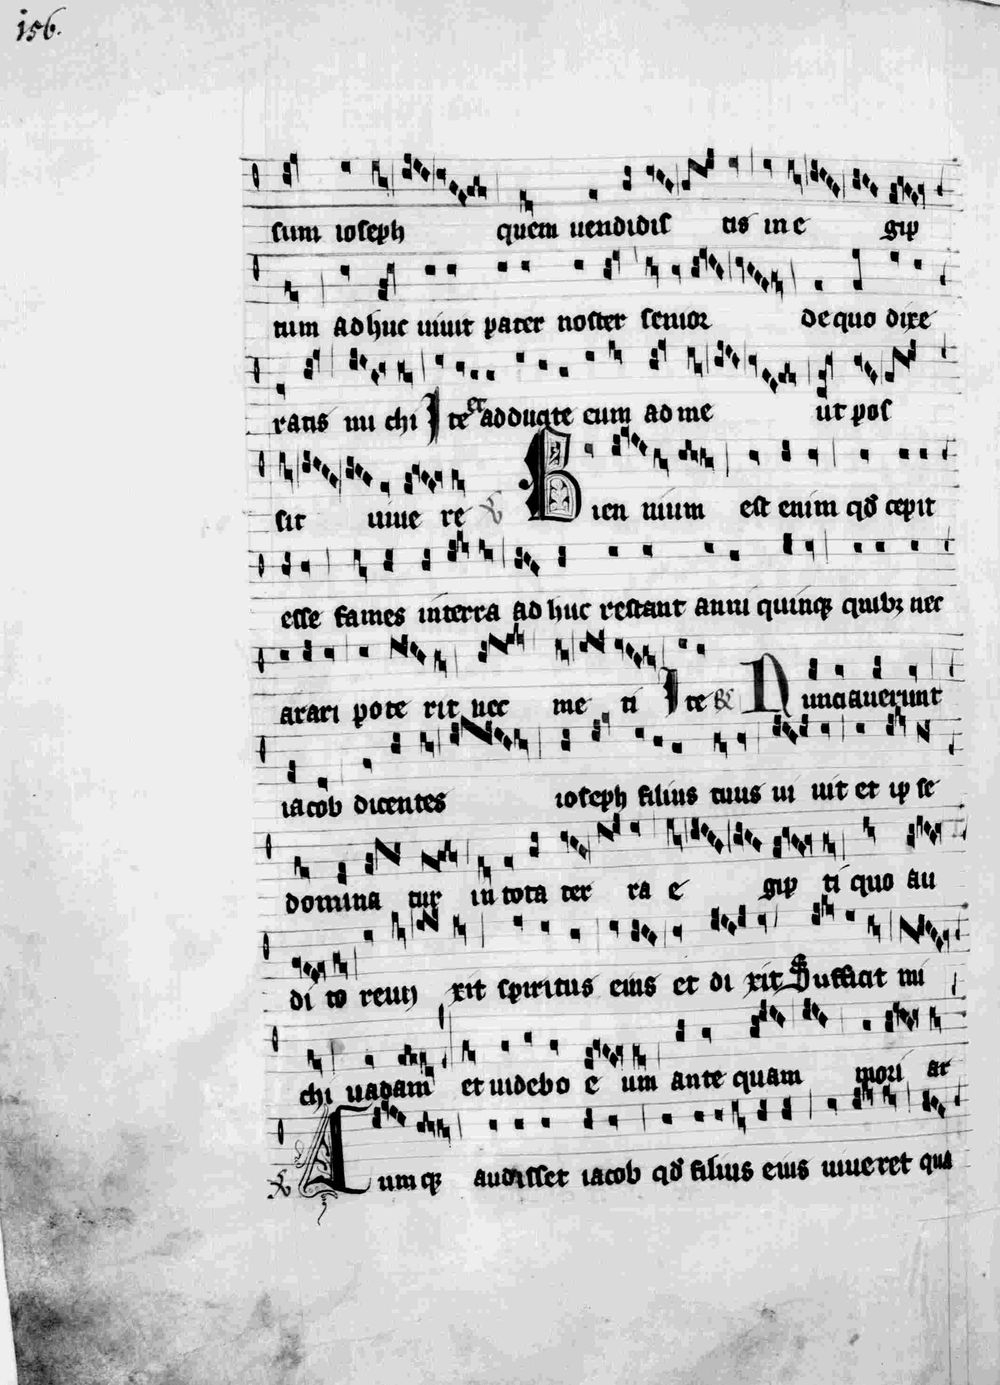 156.
sum ioseph quem uendidis tis in e gip
tum adhuc uiuit pater noster senior de quo dixe
ratis mi chi Ite et adducite eum ad me ut pos
sit uiue re Bien nium est enim qđ cepit
esse fames in terra ad huc restant anni quinqꝫ quibꝫ nec
arari pote rit nec me ti Ite Nunciauerunt
iacob dicentes ioseph filius tuus ui uit et ip se
domina tur in tota ter ra e gip ti quo au
di to reuixit spiritus eius et di xit Sufficit mi
chi uadam et uidebo e um ante quam mori ar
Cumqꝫ audisset iacob qđ filius eius uiueret qua